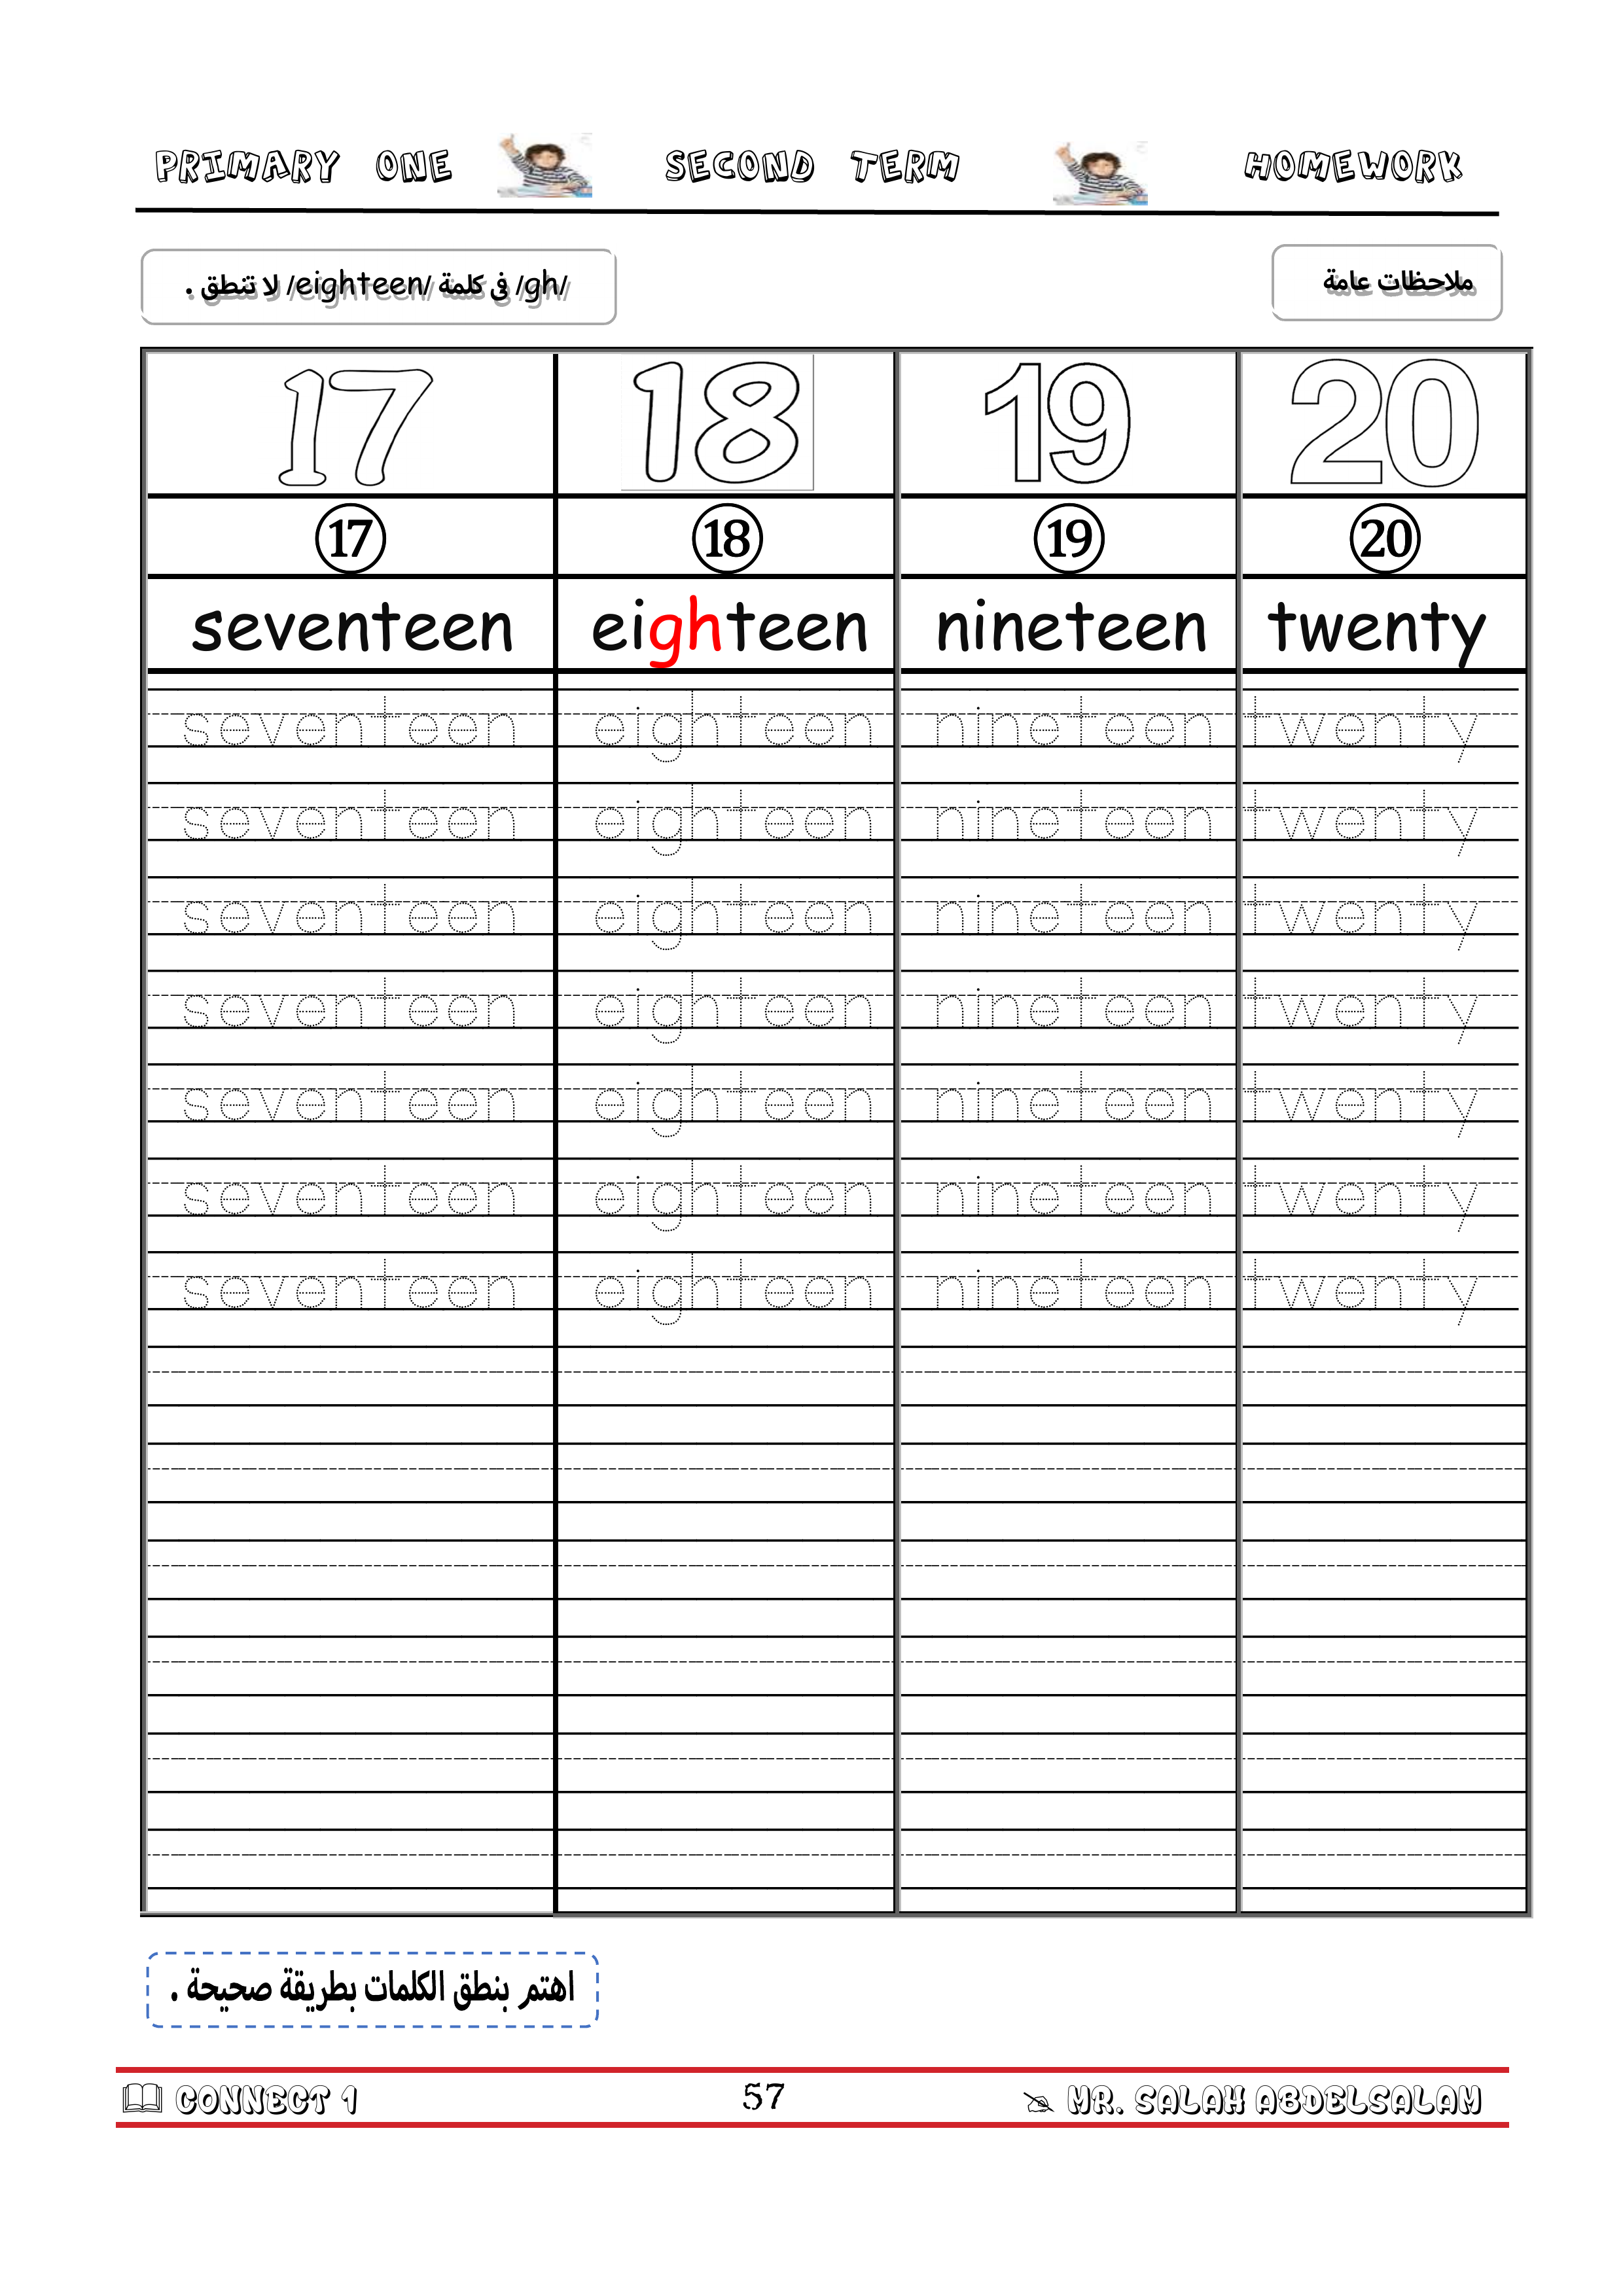 PRIMARY ONE SECOND TERM HOMEWORK
ملاحظات عامة
/gh/ فى كلمة /eighteen/ لا تنطق .
17 18 19 20
17 18 19 20
seventeen eighteen nineteen twenty
seventeen eighteen nineteen twenty
seventeen eighteen nineteen twenty
seventeen eighteen nineteen twenty
seventeen eighteen nineteen twenty
seventeen eighteen nineteen twenty
seventeen eighteen nineteen twenty
seventeen eighteen nineteen twenty
اهتم بنطق الكلمات بطريقة صحيحة .
CONNECT 1 57 MR. SALAH ABDELSALAM